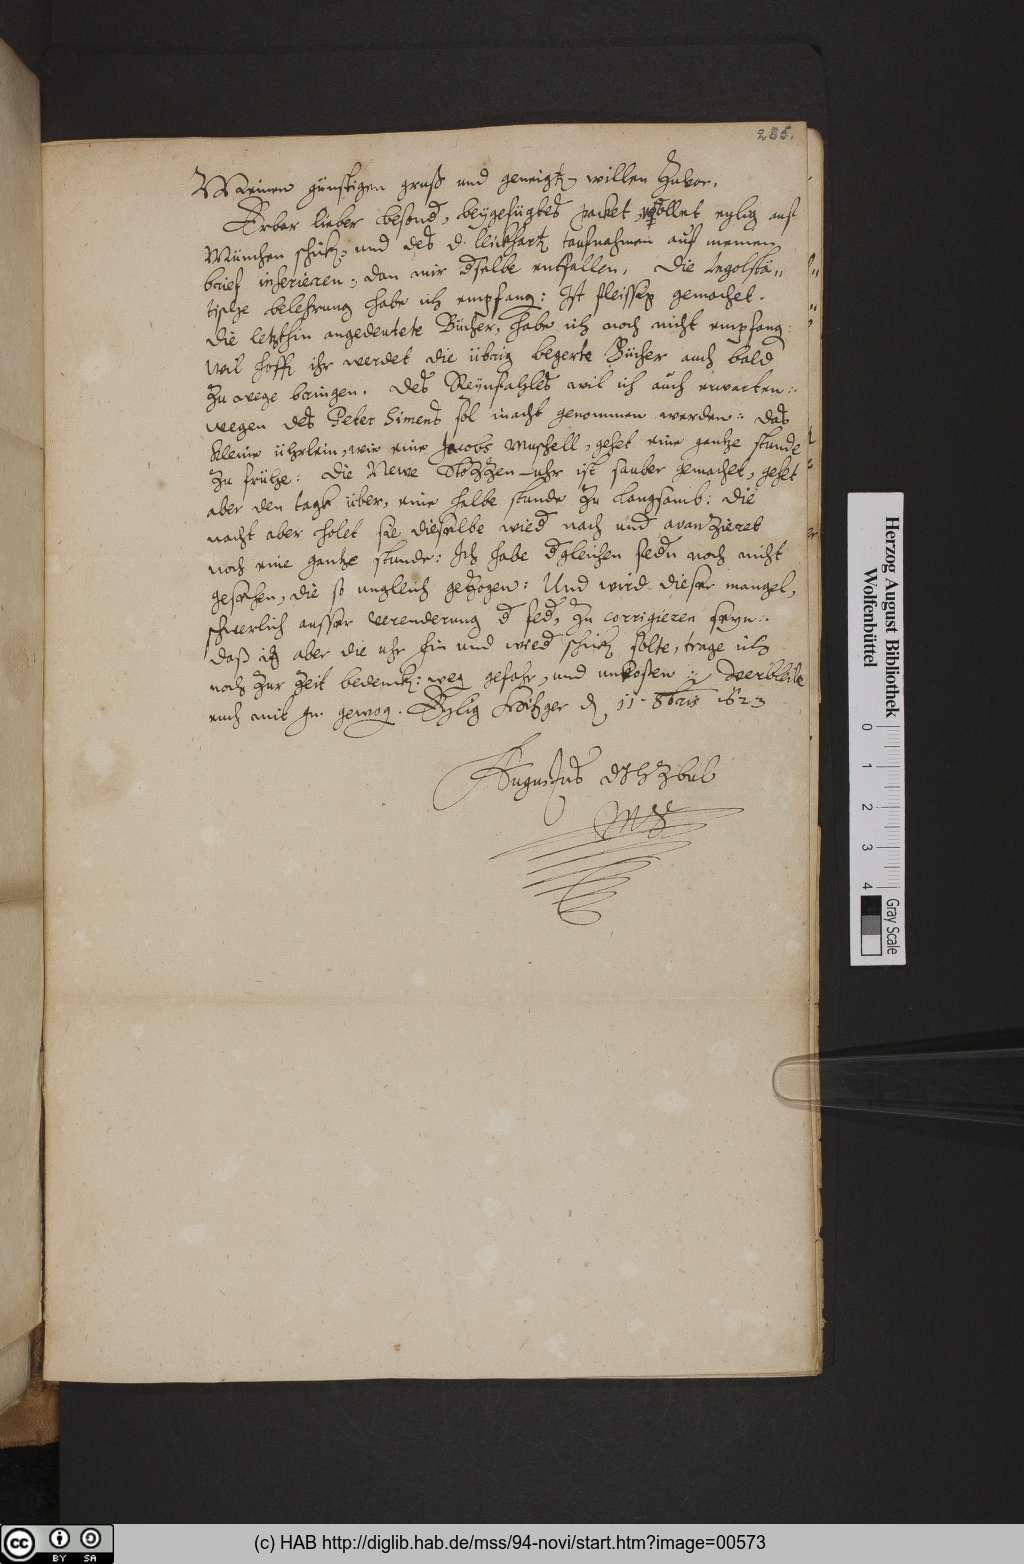 235.
Meinen günstigen gruß und geneigt. willen zuvor.
Erbar lieber besond, beÿgefügtes packet, wöllet eÿlig auf
München schick: und des d. taufnahmen auf meinen
brief inserieren: dan mir dselbe entfallen. Die Ingolstä„
tische belehrung habe ich empfang: Ist fleissig gemachet.
Die letzthin angedeutete Bücher, habe ich noch nicht empfang:
Wil hoff ihr werdet die übrig begerte Bücher auch bald
zu wege bringen. Des Reÿnfahles wil ich auch erwarten:
wegen des Peter Simens sol in acht genommen werden: Das
kleine ührlein, wie eine Jacobs Muschell, gehet eine gantze stunde
zu frühe: Die Newe Stozzen-uhr ist sauber gemachet, gehet
aber den tagk über, eine halbe stunde zu langsamb: Die
nacht aber holet sie dieselbe wied nach und avanzieret
noch eine gantze stunde: Ich habe dgleichen fedn noch nicht
gesehen, die so ungleich getzogen: Und wird dieser mangel,
schwerlich ausser verenderung d fed, zu corrigieren seyn:
Daß ich aber die uhr hin und wied schick solte, trage ich
noch zur Zeit bedenck: weg gefahr, und unkosten :/ Verbleibe
euch mit gn. gewog. Eÿlig Hitzger d 11. 8bris 1623
Augustus DHZBUL
Mp
Herzog August Bibliothek
Wolfenbüttel
0 1 2 3 4
Gray Scale
cc BY SA
(c) HAB http://diglib.hab.de/mss/94-novi/start.htm?image=00573